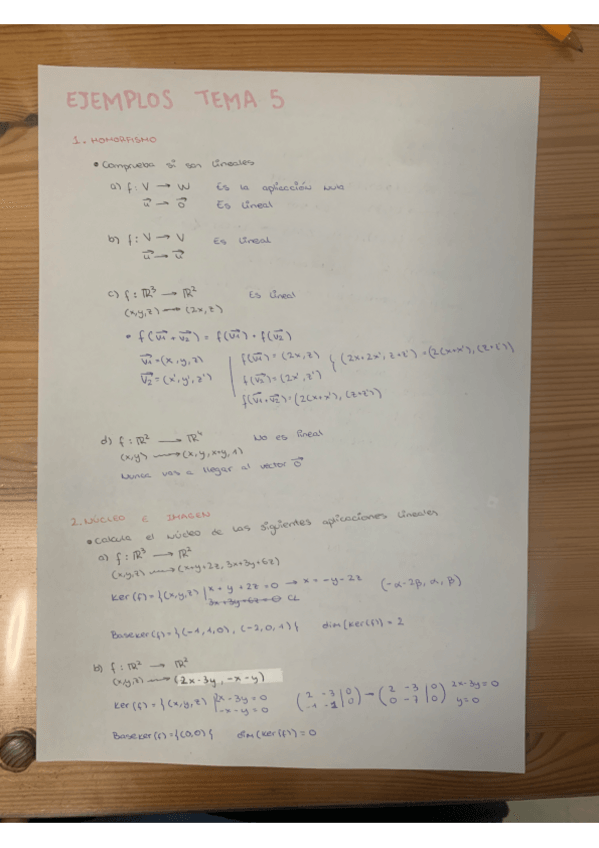 EJEMPLOS TEMA 5
1. HOMORFISMO
• Comprueba si son lineales
a) f: V → W Es la aplicación nula
u⃗ → 0⃗ Es lineal
b) f: V → V Es lineal
u⃗ → u⃗
c) f: ℝ³ → ℝ² Es lineal
(x,y,z) → (2x,z)
• f(v₁⃗ + v₂⃗) = f(v₁⃗) + f(v₂⃗)
v₁⃗ = (x,y,z) | f(v₁⃗) = (2x,z) { (2x+2x', z+z') = (2(x+x'), (z+z'))
v₂⃗ = (x',y',z') | f(v₂⃗) = (2x',z')
f(v₁⃗+v₂⃗) = (2(x+x'), (z+z'))
d) f: ℝ² → ℝ⁴ No es lineal
(x,y) → (x,y,x+y,1)
Nunca vas a llegar al vector 0⃗
2. NÚCLEO E IMAGEN
• Calcula el núcleo de las siguientes aplicaciones lineales
a) f: ℝ³ → ℝ²
(x,y,z) → (x+y+2z, 3x+3y+6z)
Ker(f) = {(x,y,z) | x + y + 2z = 0 → x = -y-2z (-α-2β, α, β)
3x+3y+6z=0 CL
Base Ker(f) = {(-1,1,0), (-2,0,1)} dim(Ker(f)) = 2
b) f: ℝ² → ℝ²
(x,y,z) → (2x-3y, -x-y)
Ker(f) = {(x,y,z) | 2x-3y=0 (2 -3 | 0) → (2 -3 | 0) 2x-3y=0
-x-y=0 (-1 -1 | 0) (0 -7 | 0) y=0
Base Ker(f) = {(0,0)} dim(Ker(f)) = 0